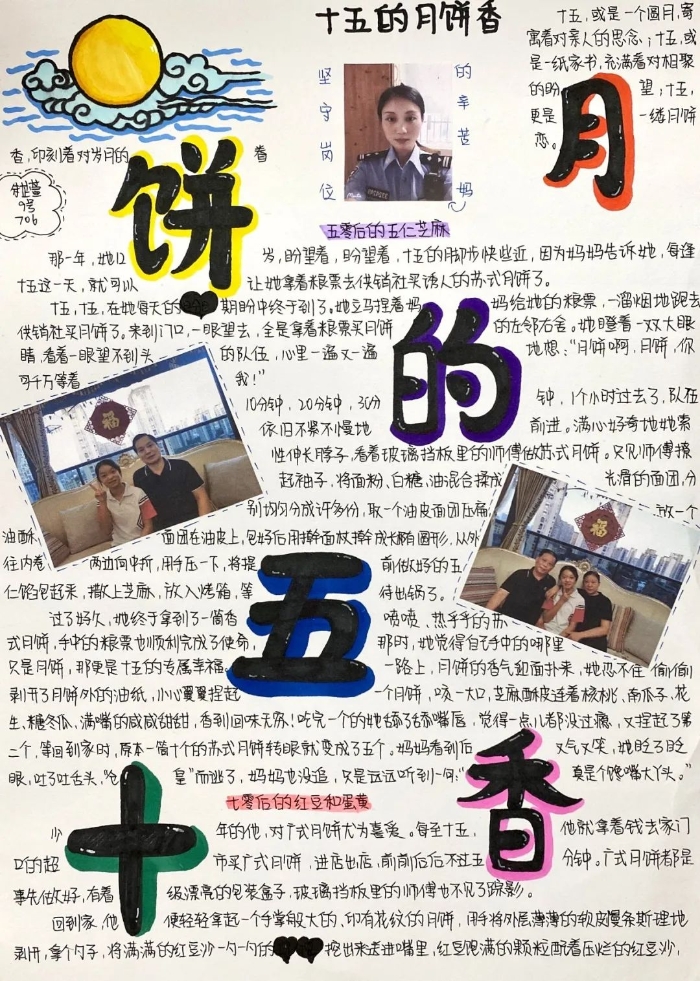 十五的月饼香
十五,或是一个圆月,寄
寓着对亲人的思念;十五,或
是一纸家书,充满着对相聚
的盼望;十五,
更是一缕月饼
香,印刻着对岁月的眷
恋。
坚守岗位
的辛苦妈
9号
706
月
饼
的
五
十
香
五零后的五仁芝麻
那一年,她12岁,盼望着,盼望着,十五的脚步快些近,因为妈妈告诉她,每逢
十五这一天,就可以让她拿着粮票去供销社买诱人的苏式月饼了。
十五,十五,在她每天的期盼中终于到了。她立马捏着妈妈给她的粮票,一溜烟地跑去
供销社买月饼了。来到门口,一眼望去,全是拿着粮票买月饼的左邻右舍。她瞪着一双大眼
睛,看着一眼望不到头的队伍,心里一遍又一遍地想:“月饼啊,月饼,你
可千万等着我!”
10分钟,20分钟,30分钟,1个小时过去了,队伍
依旧不紧不慢地前进。满心好奇地她索
性伸长脖子,看着玻璃挡板里的师傅做苏式月饼。只见师傅撩
起袖子,将面粉、白糖、油混合揉成光滑的面团,分
别均匀分成许多份,取一个油皮面团压扁,放一个
油酥面团在油皮上,包好后用擀面杖擀成长椭圆形,从外
往内卷,两边向中折,用手压一下,将提前做好的五
仁馅包起来,撒上芝麻,放入烤箱,等待出锅了。
过了好久,她终于拿到了一筒香喷喷、热乎乎的苏
式月饼,手中的粮票也顺利完成了使命,那时,她觉得自己手中的哪里
只是月饼,那更是十五的专属幸福。一路上,月饼的香气迎面扑来,她忍不住偷偷
剥开了月饼外的油纸,小心翼翼捏起一个月饼,咬一大口,芝麻酥皮连着核桃、南瓜子、花
生、糖冬瓜,满嘴的咸咸甜甜,香到回味无穷!吃完一个的她舔了舔嘴唇,觉得一点儿都没过瘾,又捏起了第
二个,等回到家时,原本一筒十个的苏式月饼转眼就变成了五个。妈妈看到后又气又笑,她眨了眨
眼,吐了吐舌头,“仓皇”而逃了,妈妈也没追,只是远远听到一句:“真是个馋嘴大丫头。”
七零后的红豆和蛋黄
少年的他,对广式月饼尤为喜爱。每至十五,他就拿着钱去家门
口的超市买广式月饼,进店出店,前前后后不过五分钟。广式月饼都是
事先做好,有着级漂亮的包装盒子,玻璃挡板里的师傅也不见了踪影。
回到家,他便轻轻拿起一个手掌般大的、印有花纹的月饼,用手将外层薄薄的软皮慢条斯理地
剥开,拿个勺子,将满满的红豆沙一勺一勺的挖出来送进嘴里,红豆饱满的颗粒配着压烂的红豆沙,